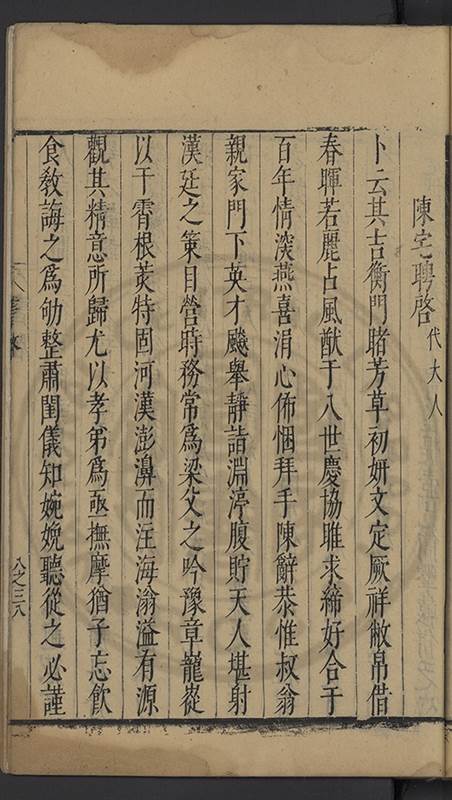 陳宅聘啓代大人
卜云其吉衡門睹芳草初妍文定厥祥敝帚借
春暉若麗占風猷于八世慶協雎求締好合于
百年情深燕喜涓心佈悃拜手陳辭恭惟叔翁
親家門下英才飈舉靜詣淵渟腹貯天人堪射
漢廷之策目營時務常爲梁父之吟豫章巃嵸
以干霄根荄特固河漢澎濞而注海滃溢有源
觀其精意所歸尤以孝弟爲亟撫摩猶子忘飲
食敎誨之爲劬整肅閨儀知婉娩聽從之必謹
八之三八